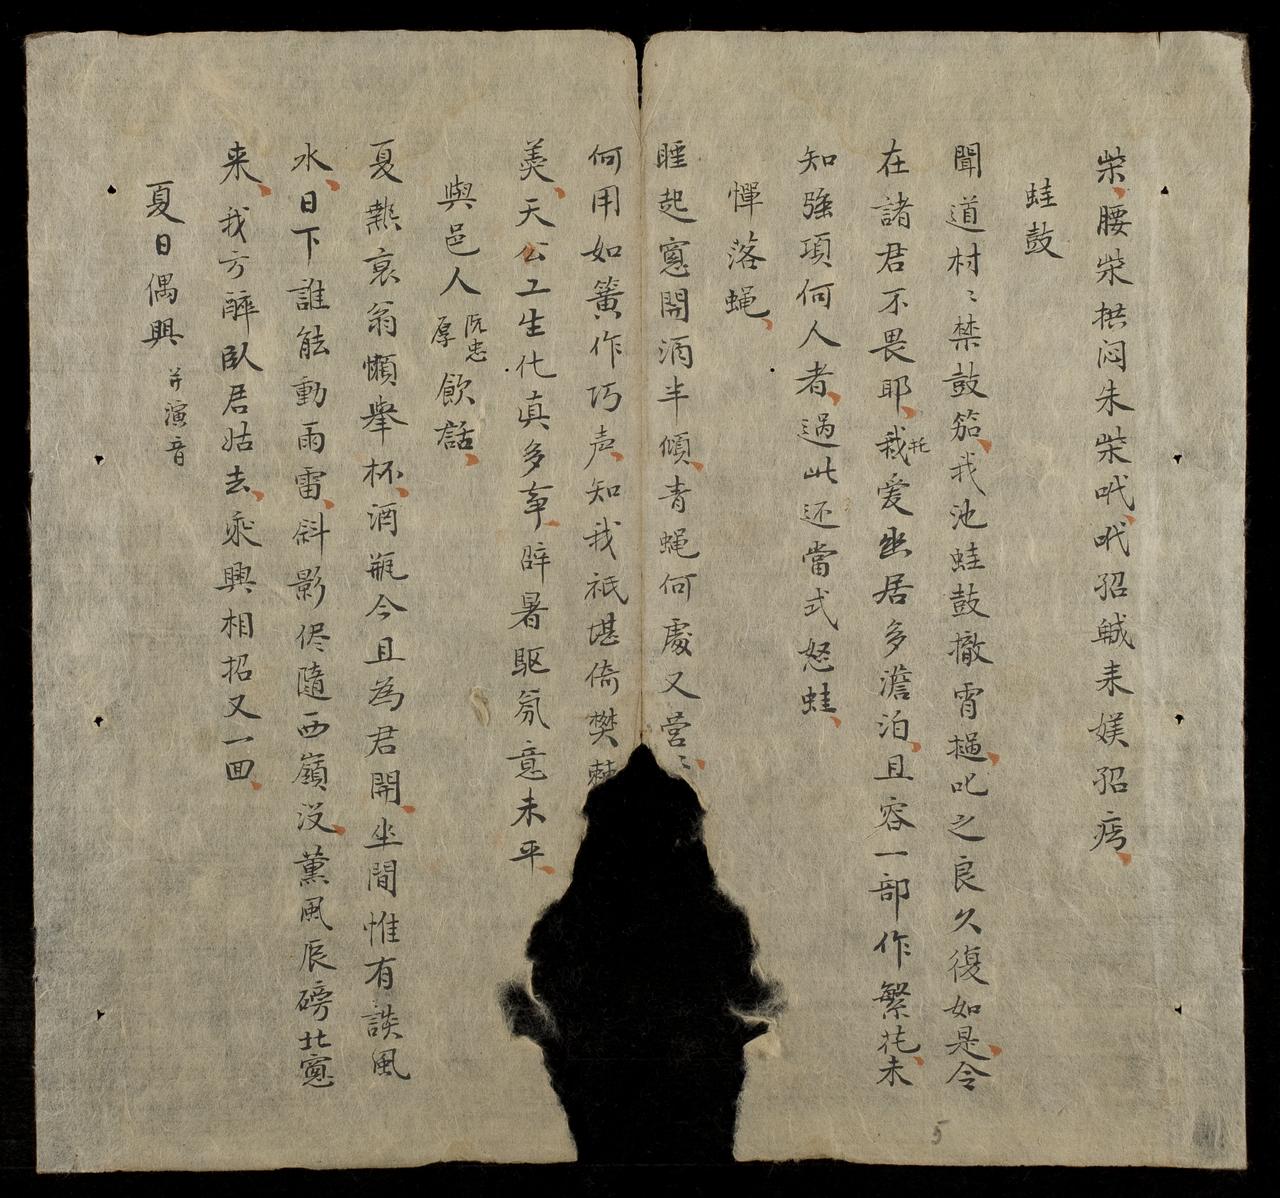 柴腰柴拱闷朱柴吠吠𧵑𢧚耒媄𧵑㾄
蛙鼓
聞道村〻禁鼓笳我池蛙鼓撤宵撾叱之良久復如是今
在諸君不畏耶我托爱幽居多澹泊且容一部作繁花未
知強項何人者過此还當式怒蛙
憚落蝇
睡起窻開酒半傾青蝇何處又营〻
何用如簧作巧声知我祇堪倚樊棘
羙天公工生化真多事辟暑驅氛意未平
與邑人阮忠厚飲話
夏熱衰翁懶舉杯酒瓶今且為君開坐間惟有談風
水日下誰能動雨雷斜影侭隨西嶺没薰風辰磅北窻
来我方醉臥君姑去乘興相招又一囬
夏日偶興并演音
5